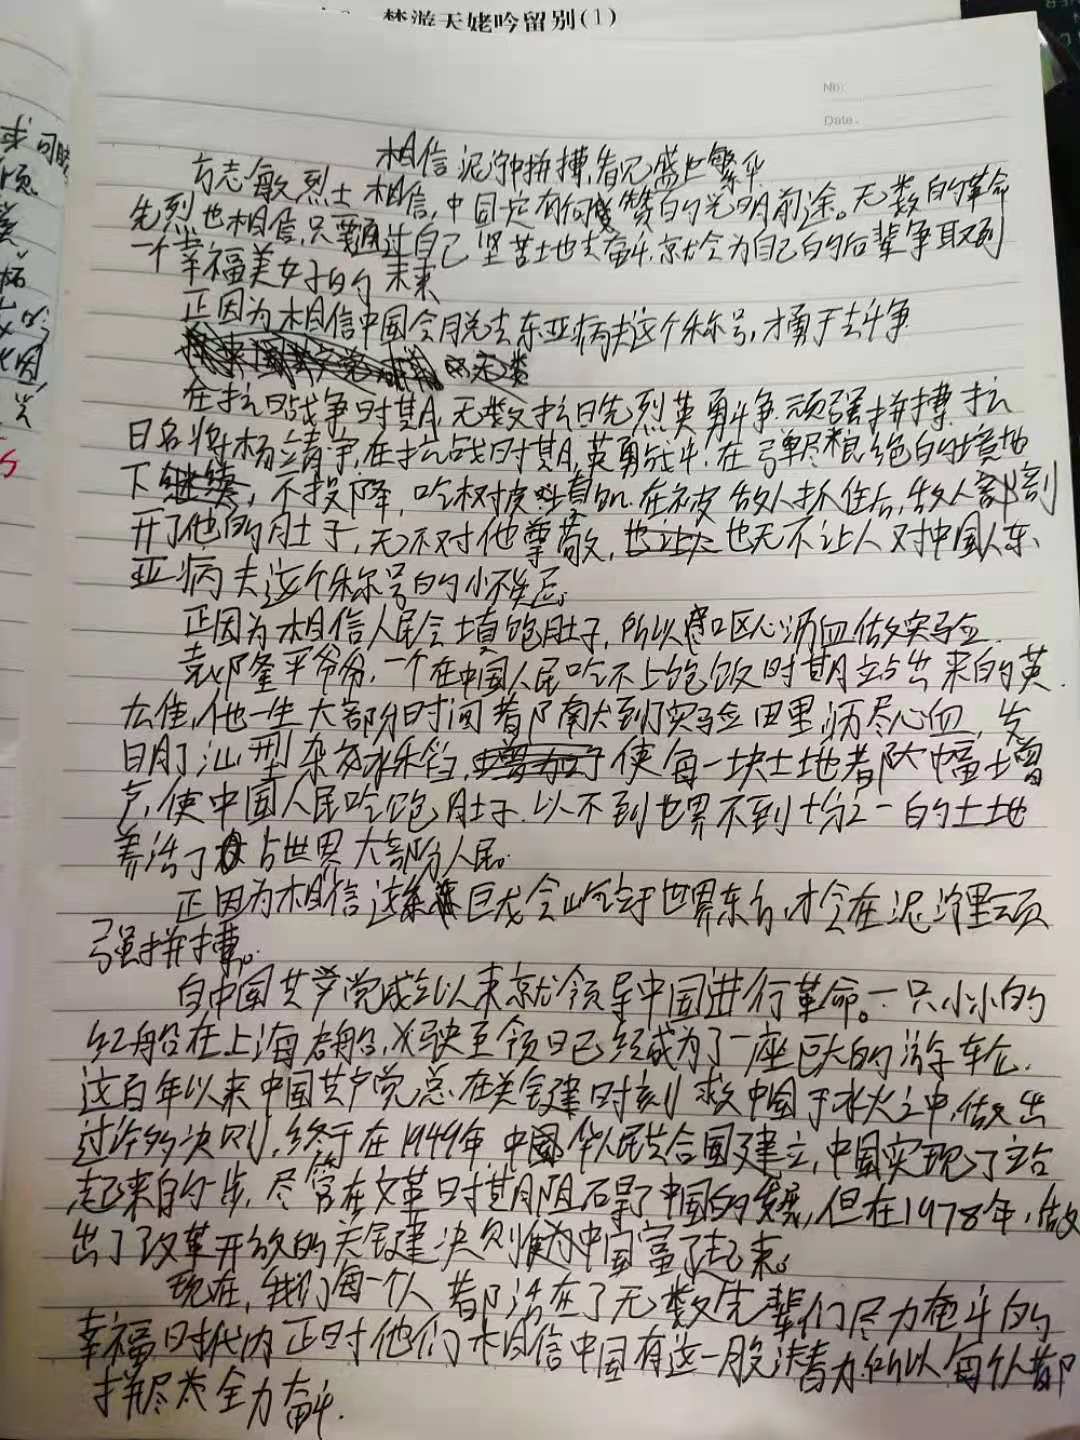 梦游天姥吟留别(1)
No:
Date.
相信泥泞中拼搏,看见盛世繁华
方志敏烈士相信,中国定有个可赞的光明前途。无数的革命
先烈也相信,只要通过自己坚苦土地去奋斗.就会为自己的后辈争取到
一个幸福美好的未来
正因为相信中国会脱去东亚病夫这个称号,才勇于去斗争
在抗日战争时期,无数抗日先烈英勇斗争.顽强拼搏.抗
日名将杨靖宇,在抗战时期,英勇战斗.在弹尽粮绝的境地
下,不投降,吃树皮,在被敌人抓住后,敌人剖
开了他的肚子,无不对他尊敬,也无不让人对中国人东
亚病夫这个称号的
正因为相信人民会填饱肚子,所以呕心沥血做实验.
袁隆平爷爷,一个在中国人民吃不上饱饭时期站出来的英
雄,他一生大部分时间都南大到了实验田里沥尽心血,发
明了汕型杂交水稻,使每一块土地都大幅土增
产,使中国人民吃饱肚子.以不到世界不到十分之一的土地
养活了占世界大部分人民.
正因为相信这条巨龙会屹立于世界东方,才会在泥泞里顽
强拼搏。
自中国共产党成立以来就领导中国进行革命。一只小小的
红船在上海启船,驶至今日已经成为了一座巨大的游轮.
这百年以来中国共产党总在关键时刻救中国于水火之中,做出
过许多决则,终于在1949年中国华人民共合国建立,中国实现了站
起来的一步,尽管在文革时期阻碍了中国的发展,但在1978年,做
出了改革开放的关键决则惟为中国富了起来。
现在,我们每一个人都活在了无数先辈们尽力奋斗的
幸福时代内正时他们相信中国有这一股活着力.所以每个人都
拼尽全力奋斗.